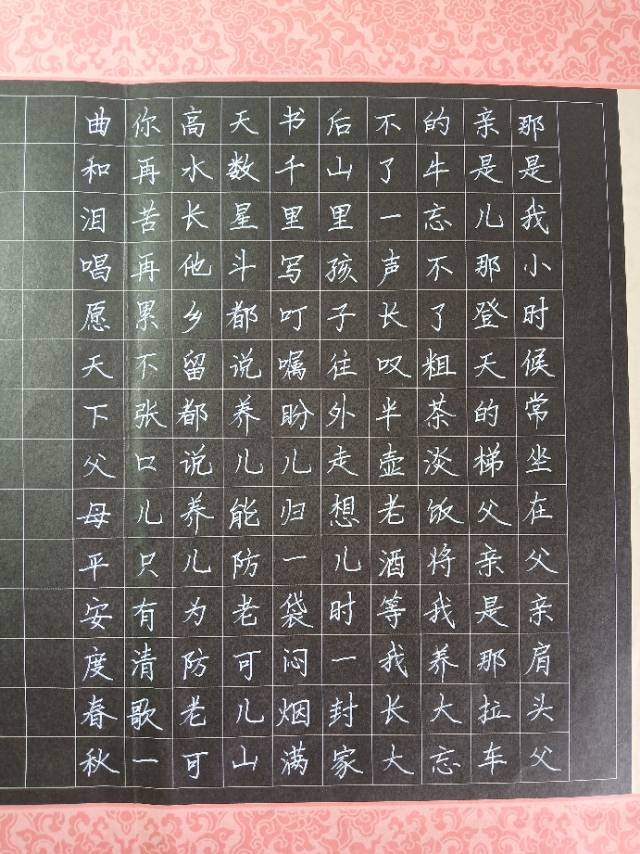 那是我小时候常坐在父亲肩头父
亲是儿那登天的梯父亲是那拉车
的牛忘不了粗茶淡饭将我养大忘
不了一声长叹半壶老酒等我长大
后山里孩子往外走想儿时一封家
书千里写叮嘱盼儿归一袋烟闷满
天数星斗都说养儿能防老可儿山
高水长他乡留都说养儿为防老可
你再苦再累不张口儿只有清歌一
曲和泪唱愿天下父母平安度春秋